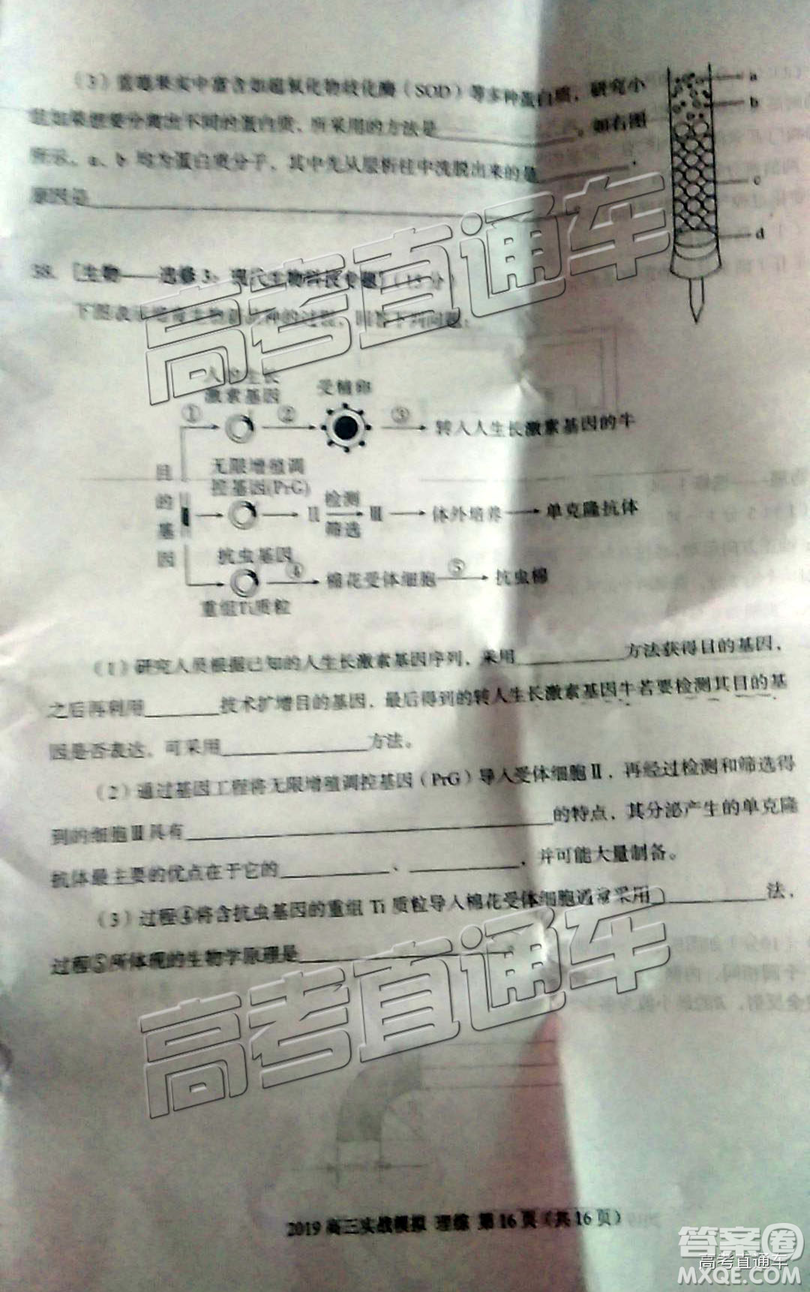 （3）蓝莓果实中富含如超氧化物歧化酶（SOD）等多种蛋白质，研究小
组如果想要分离出不同的蛋白质，所采用的方法是。如右图
所示，a、b 均为蛋白质分子，其中先从层析柱中洗脱出来的是，
原因是
a
b
c
d
38. [生物——选修3：现代生物科技专题]（15分）
下图表示培育生物新品种的过程，回答下列问题：
人的生长
激素基因
受精卵
① ② ③
转入人生长激素基因的牛
目的基因
无限增殖调
控基因(PrG)
Ⅱ 检测 筛选 Ⅲ 体外培养 单克隆抗体
抗虫基因
④ 棉花受体细胞 ⑤ 抗虫棉
重组Ti质粒
（1）研究人员根据已知的人生长激素基因序列，采用方法获得目的基因，
之后再利用技术扩增目的基因，最后得到的转入生长激素基因牛若要检测其目的基
因是否表达，可采用方法。
（2）通过基因工程将无限增殖调控基因（PrG）导入受体细胞Ⅱ，再经过检测和筛选得
到的细胞Ⅲ具有的特点，其分泌产生的单克隆
抗体最主要的优点在于它的、，并可能大量制备。
（3）过程④将含抗虫基因的重组 Ti 质粒导入棉花受体细胞通常采用法，
过程⑤所体现的生物学原理是。
2019 高三实战模拟 理综 第16页（共16页）
高考直通车
高考直通车
答案圈
高考直通车
MXQE.COM